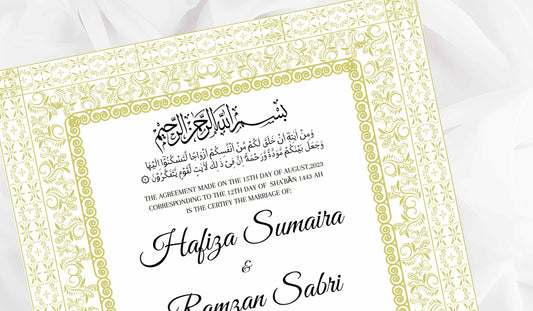 بسم الله الرحمن الرحيم
وَمِنْ اٰيٰتِهٖٓ اَنْ خَلَقَ لَكُمْ مِّنْ اَنْفُسِكُمْ اَزْوَاجًا لِّتَسْكُنُوْٓا اِلَيْهَا
وَجَعَلَ بَيْنَكُمْ مَّوَدَّةً وَّرَحْمَةً اِنَّ فِيْ ذٰلِكَ لَاٰيٰتٍ لِّقَوْمٍ يَّتَفَكَّرُوْنَ
THE AGREEMENT MADE ON THE 15TH DAY OF AUGUST,2023
CORRESPONDING TO THE 12TH DAY OF SHA'BĀN 1443 AH
IS THE CERTIFY THE MARRIAGE OF:
Hafiza Sumaira
&
Ramzan Sabri